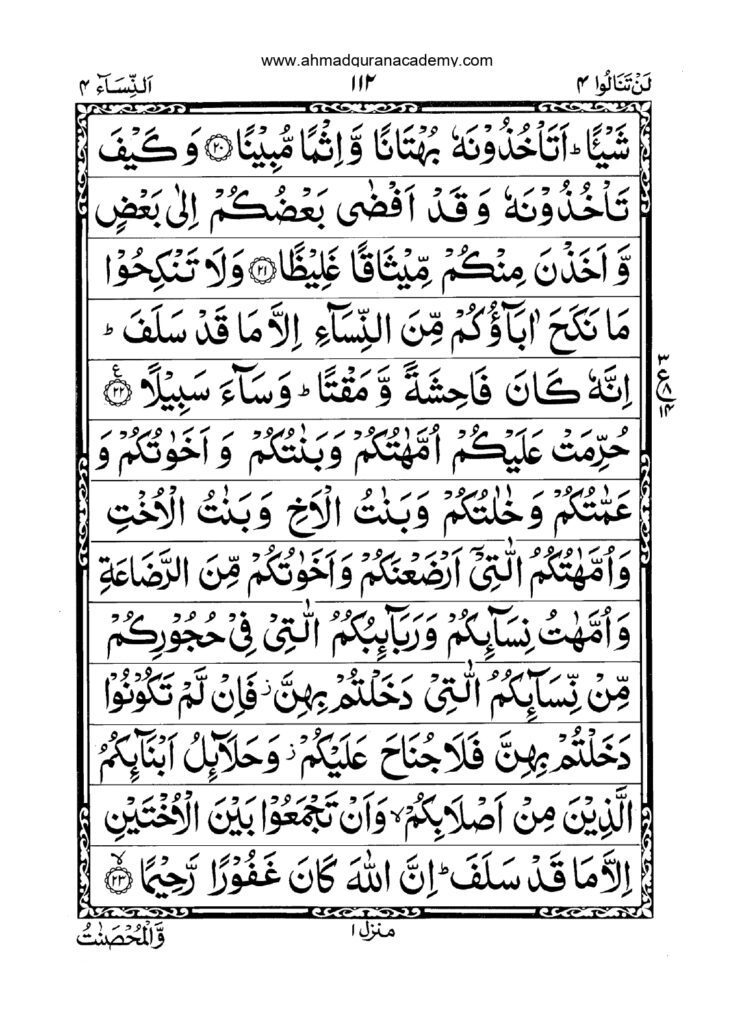 www.ahmadquranacademy.com
لَنْ تَنَالُوا ۴ ١١٢ اَلنِّسَآء ۴
شَيْـًٔا ؕ اَتَاْخُذُوْنَهٗ بُهْتَانًا وَّ اِثْمًا مُّبِيْنًا ﴿۲۰﴾ وَ كَيْفَ
تَاْخُذُوْنَهٗ وَ قَدْ اَفْضٰى بَعْضُكُمْ اِلٰى بَعْضٍ
وَّ اَخَذْنَ مِنْكُمْ مِّيْثَاقًا غَلِيْظًا ﴿۲۱﴾ وَلَا تَنْكِحُوْا
مَا نَكَحَ اٰبَآؤُكُمْ مِّنَ النِّسَآءِ اِلَّا مَا قَدْ سَلَفَ ؕ
اِنَّهٗ كَانَ فَاحِشَةً وَّ مَقْتًا ؕ وَسَآءَ سَبِيْلًا ﴿۲۲﴾ ع
۳ ع ۸ ۱۴
حُرِّمَتْ عَلَيْكُمْ اُمَّهٰتُكُمْ وَبَنٰتُكُمْ وَ اَخَوٰتُكُمْ وَ
عَمّٰتُكُمْ وَ خٰلٰتُكُمْ وَبَنٰتُ الْاَخِ وَبَنٰتُ الْاُخْتِ
وَاُمَّهٰتُكُمُ الّٰتِيْۤ اَرْضَعْنَكُمْ وَاَخَوٰتُكُمْ مِّنَ الرَّضَاعَةِ
وَاُمَّهٰتُ نِسَآئِكُمْ وَرَبَآئِبُكُمُ الّٰتِيْ فِيْ حُجُوْرِكُمْ
مِّنْ نِّسَآئِكُمُ الّٰتِيْ دَخَلْتُمْ بِهِنَّ ؗ فَاِنْ لَّمْ تَكُوْنُوْا
دَخَلْتُمْ بِهِنَّ فَلَا جُنَاحَ عَلَيْكُمْ ؗ وَحَلَآئِلُ اَبْنَآئِكُمُ
الَّذِيْنَ مِنْ اَصْلَابِكُمْ ۙ وَاَنْ تَجْمَعُوْا بَيْنَ الْاُخْتَيْنِ
اِلَّا مَا قَدْ سَلَفَ ؕ اِنَّ اللّٰهَ كَانَ غَفُوْرًا رَّحِيْمًا ۙ﴿۲۳﴾
منزل ١
وَّالْمُحْصَنٰتُ